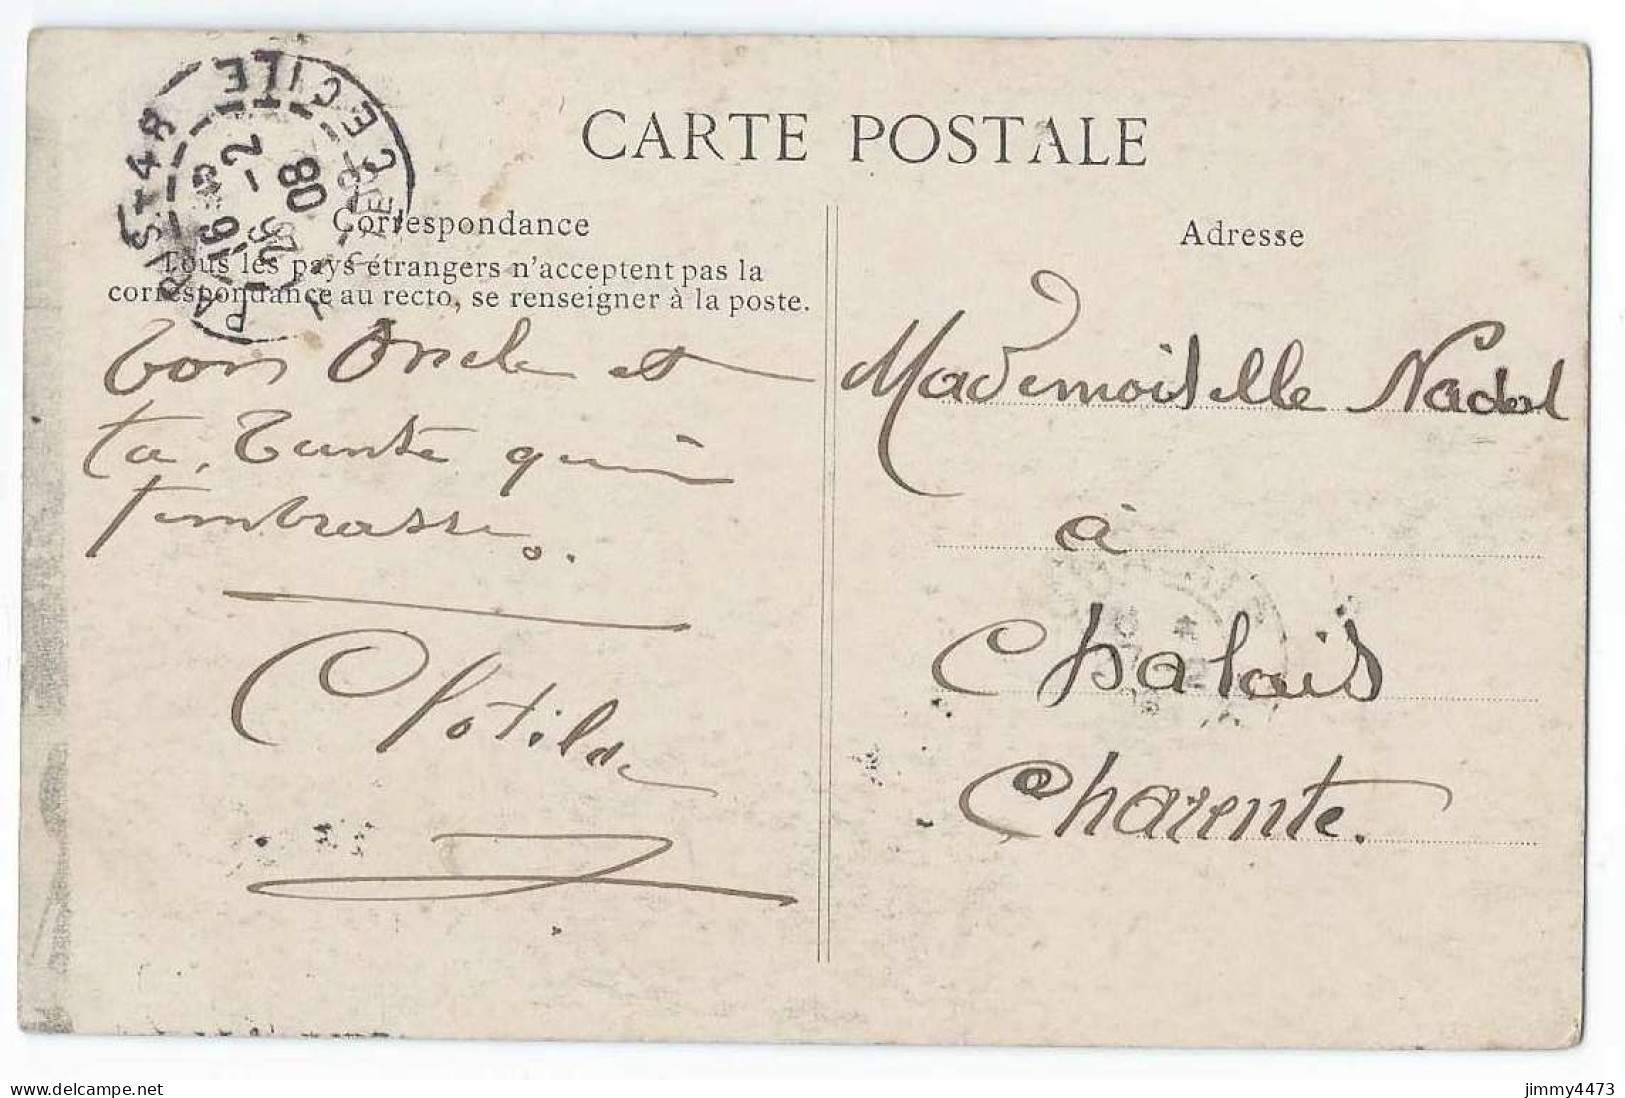 CARTE POSTALE
Correspondance
Tous les pays étrangers n'acceptent pas la
correspondance au recto, se renseigner à la poste.
bon Oncle et
ta Tante qui
t'embrasse.
Clotilde
Adresse
Mademoiselle Nadal
à
Chalais
Charente.
PARIS
16
2
08
delcampe.net
jimmy4473